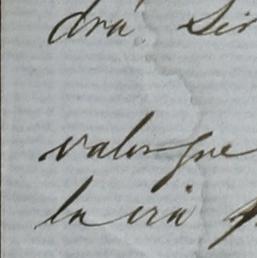 drá. Sir
valor que
la irá